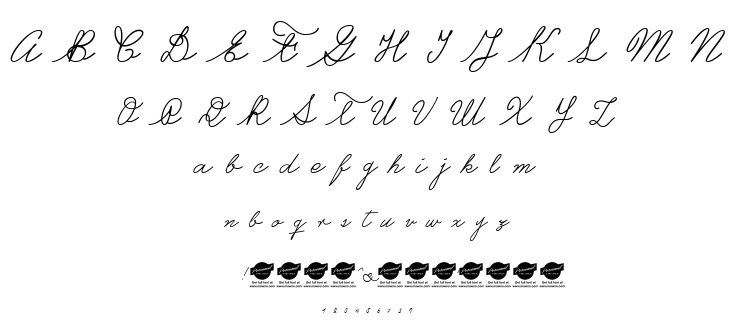 A B C D E F G H I J K L M N
O P Q R S T U V W X Y Z
a b c d e f g h i j k l m
n b o q r s t u v w x y z
! ^ &
1 2 3 4 5 6 7 8 9